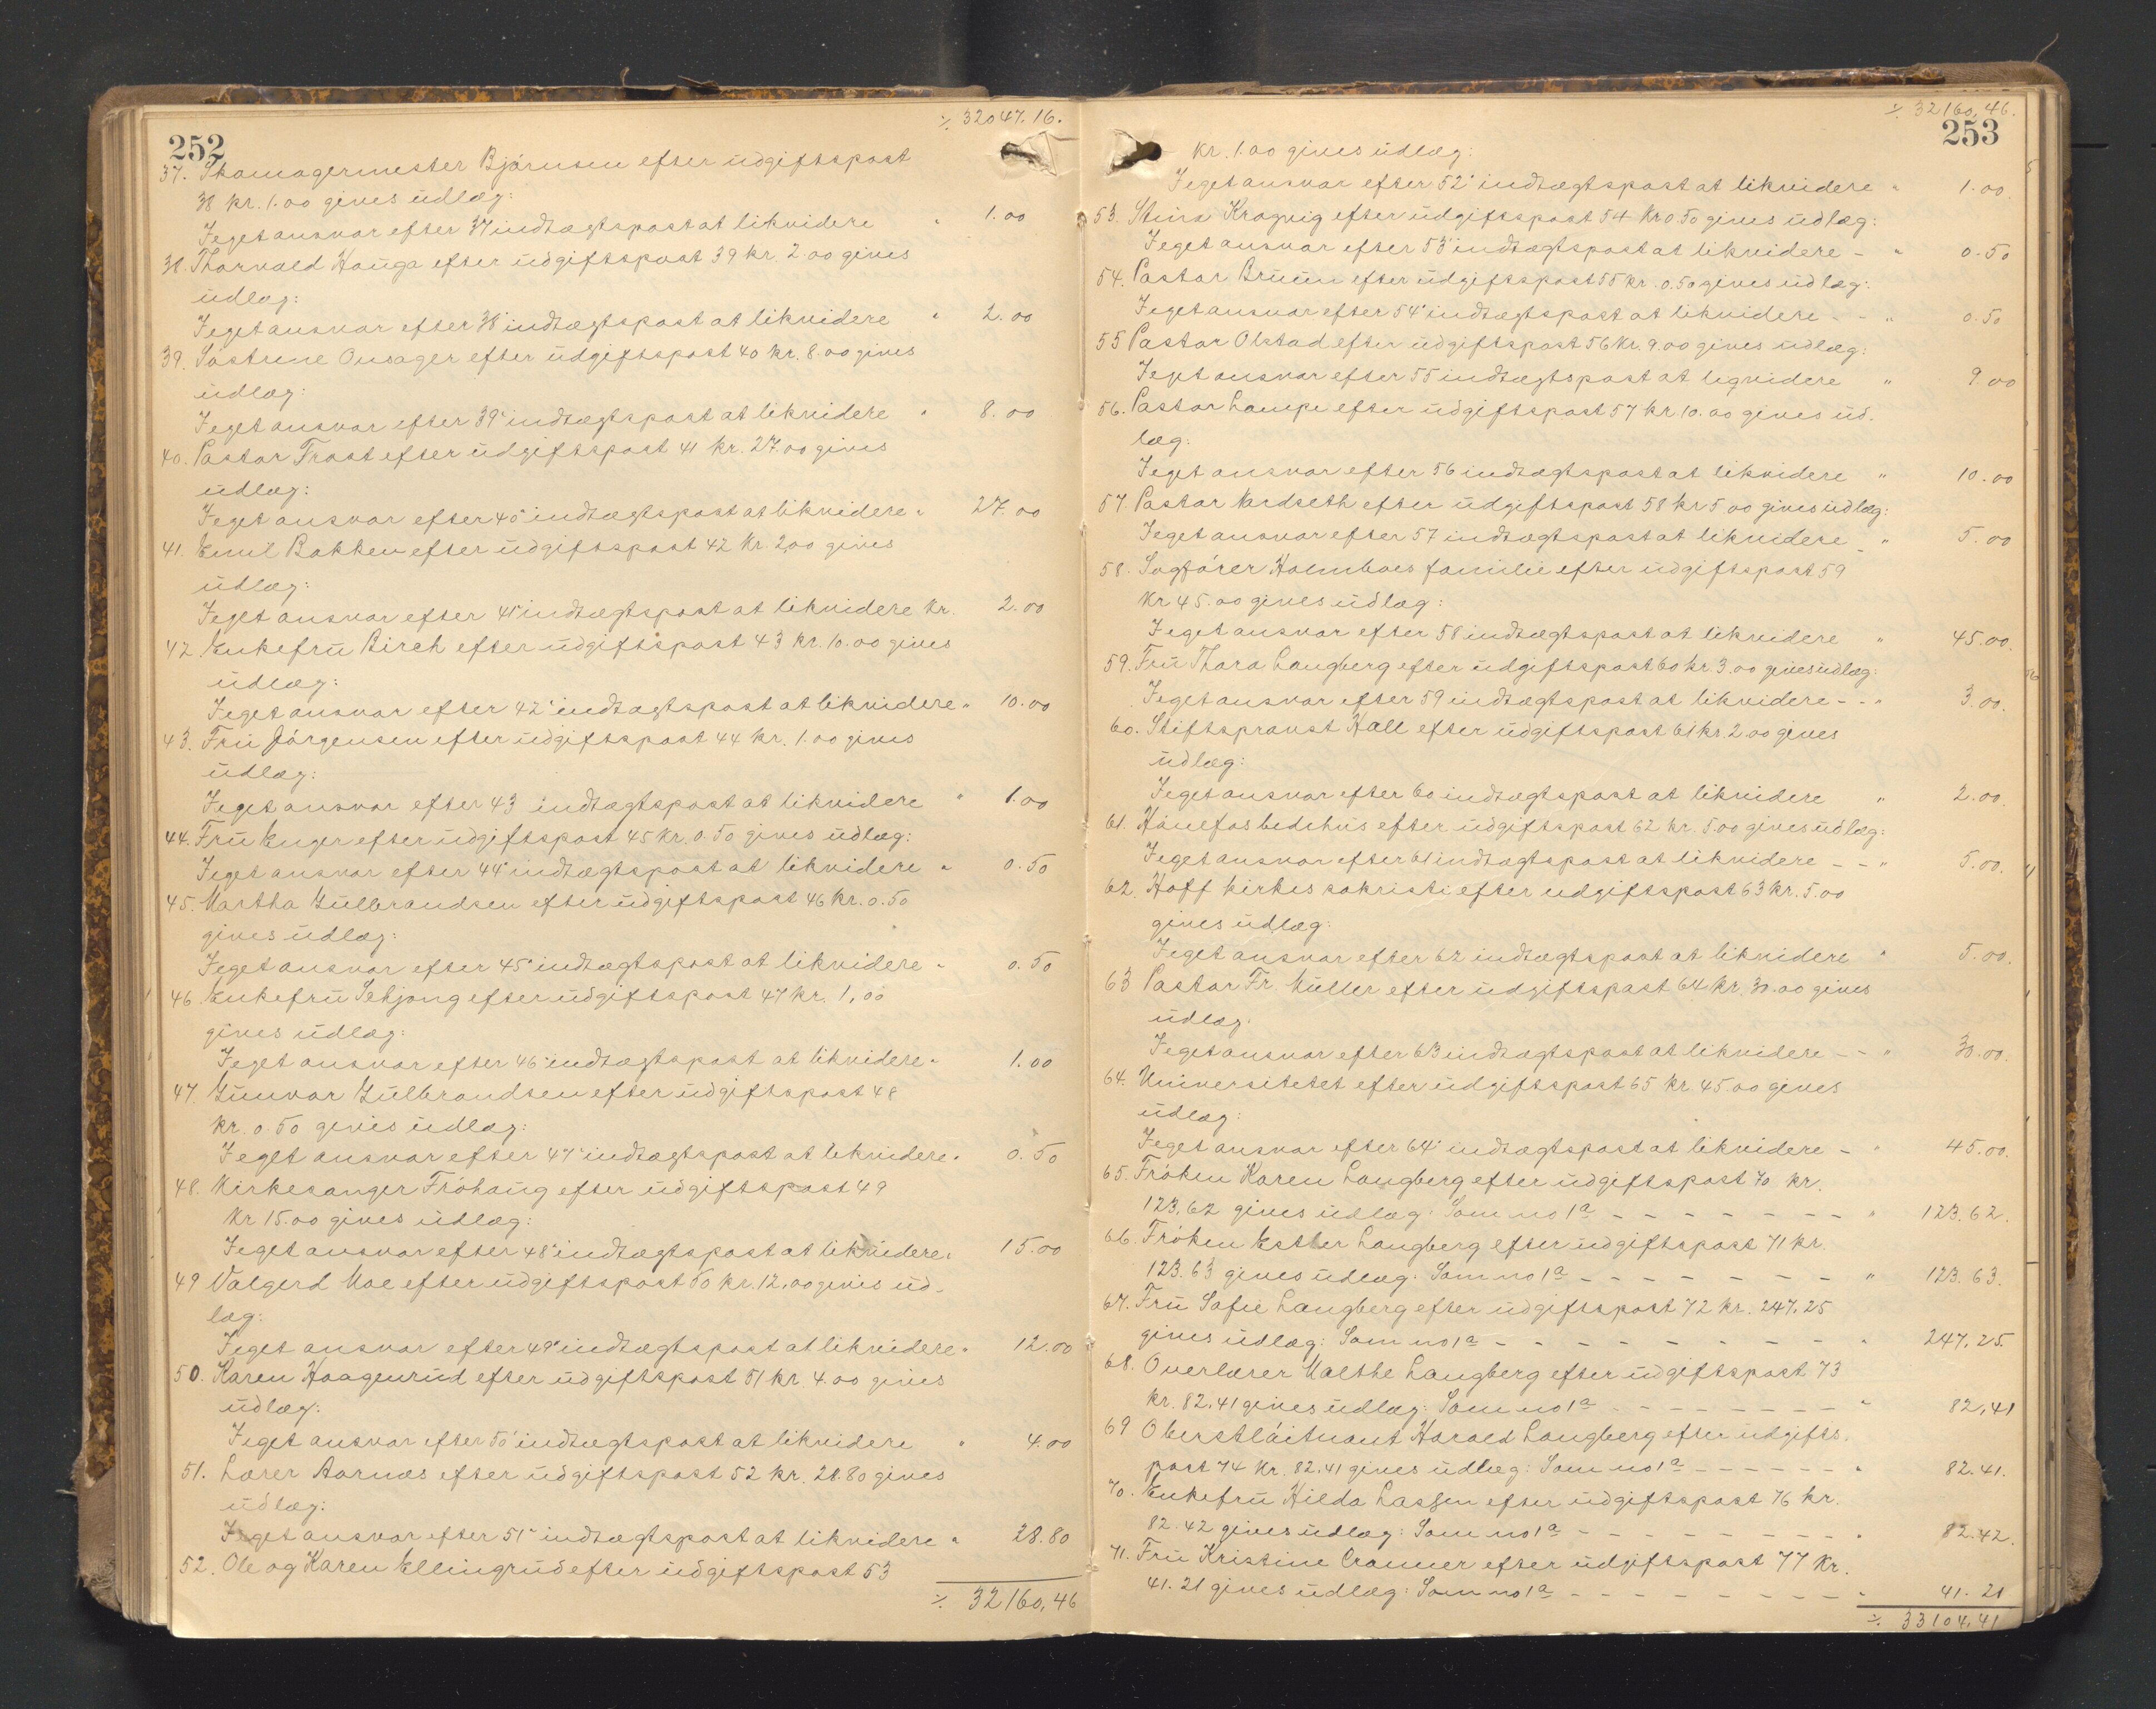 ÷ 32047.16.
252
37. Skomagermester Bjørnsen efter udgiftspost
38 kr. 1.00 gives udlæg:
I eget ansvar efter 37 indtægtspost at likvidere " 1.00
38. Thorvald Hauga efter udgiftspost 39 kr. 2.00 gives
udlæg:
I eget ansvar efter 38' indtægtspost at likvidere " 2.00
39. Søstrene Onsager efter udgiftspost 40 kr. 8.00 gives
udlæg:
I eget ansvar efter 39' indtægtspost at likvidere " 8.00
40. Pastor Trost efter udgiftspost 41 kr. 27.00 gives
udlæg:
I eget ansvar efter 40' indtægtspost at likvidere " 27.00
41. Emil Bakken efter udgiftspost 42 kr. 2.00 gives
udlæg:
I eget ansvar efter 41' indtægtspost at likvidere kr. 2.00
42 Enkefru Birch efter udgiftspost 43 kr. 10.00 gives
udlæg:
I eget ansvar efter 42' indtægtspost at likvidere " 10.00
43. Fru Jørgensen efter udgiftspost 44 kr. 1.00 gives
udlæg:
I eget ansvar efter 43 indtægtspost at likvidere " 1.00
44. Fru Enger efter udgiftspost 45 kr. 0.50 gives udlæg:
I eget ansvar efter 44' indtægtspost at likvidere " 0.50
45. Martha Gulbrandsen efter udgiftspost 46 kr. 0.50
gives udlæg:
I eget ansvar efter 45' indtægtspost at likvidere " 0.50
46. Enkefru Sehjong efter udgiftspost 47 kr. 1,00
gives udlæg:
I eget ansvar efter 46' indtægtspost at likvidere " 1.00
47. Gunvor Gulbrandsen efter udgiftspost 48
kr. 0.50 gives udlæg:
I eget ansvar efter 47' indtægtspost at likvidere " 0.50
48. Kirkesanger Frøhaug efter udgiftspost 49
kr 15.00 gives udlæg:
I eget ansvar efter 48' indtægtspost at likvidere " 15.00
49 Valgerd Moe efter udgiftspost 50 kr. 12.00 gives ud-
læg:
I eget ansvar efter 49' indtægtspost at likvidere " 12.00
50. Karen Haagenrud efter udgiftspost 51 kr. 4.00 gives
udlæg:
I eget ansvar efter 50' indtægtspost at likvidere " 4.00
51. Lærer Aarnæs efter udgiftspost 52 kr. 28.80 gives
udlæg:
I eget ansvar efter 51' indtægtspost at likvidere " 28.80
52. Ole og Karen Ellingrud efter udgiftspost 53
÷ 32160,46
÷ 32160,46.
253
kr. 1.00 gives udlæg:
I eget ansvar efter 52' indtægtspost at likvidere " 1.00.
53. Stina Kragvig efter udgiftspost 54 kr 0.50 gives udlæg:
I eget ansvar efter 53' indtægtspost at likvidere - " 0.50
54. Pastor Bruun efter udgiftspost 55 kr. 0.50 gives udlæg:
I eget ansvar efter 54' indtægtspost at likvidere - - " 0.50
55 Pastor Olstad efter udgiftspost 56 kr. 9.00 gives udlæg:
I eget ansvar efter 55 indtægtspost at liqvidere " 9.00
56. Pastor Lampe efter udgiftspost 57 kr 10.00 gives ud-
læg:
I eget ansvar efter 56 indtægtspost at likvidere " 10.00
57. Pastor Kardseth efter udgiftspost 58 kr 5.00 gives udlæg:
I eget ansvar efter 57 indtægtspost at likvidere - " 5.00
58. Sagfører Holmboes familie efter udgiftspost 59
kr 45.00 gives udlæg:
I eget ansvar efter 58 indtægtspost at likvidere " 45.00.
59. Fru Thora Langberg efter udgiftspost 60 kr 3.00 gives udlæg:
I eget ansvar efter 59 indtægtspost at likvidere - - " 3.00.
60. Stiftsprovst Hall efter udgiftspost 61 kr. 2.00 gives
udlæg:
I eget ansvar efter 60 indtægtspost at likvidere " 2.00.
61. Hønefos bedehus efter udgiftspost 62 kr. 5.00 gives udlæg:
I eget ansvar efter 61 indtægtspost at likvidere - - " 5.00.
62. Hoff kirkes sakristi efter udgiftspost 63 kr. 5.00
gives udlæg:
I eget ansvar efter 62 indtægtspost at likvidere " 5.00.
63 Pastor Fr. Müller efter udgiftspost 64 kr. 30.00 gives
udlæg.
I eget ansvar efter 63 indtægtspost at likvidere - - " 30.00.
64. Universitetet efter udgiftspost 65 kr 45.00 gives
udlæg:
I eget ansvar efter 64' indtægtspost at likvidere - " 45.00.
65. Frøken Karen Langberg efter udgiftspost 70 kr.
123,62 gives udlæg: Som no 1a - - - - - - - " 123.62.
66. Frøken Esther Langberg efter udgiftspost 71 kr.
123.63 gives udlæg: Som no 1a - - - - - - - " 123.63.
67. Fru Sofie Langberg efter udgiftspost 72 kr. 247,25
gives udlæg: Som no 1a - - - - - - - - - " 247.25.
68. Overlærer Malthe Langberg efter udgiftspost 73
kr. 82,41 gives udlæg: Som no 1a - - - - - - - - " 82,41
69 Oberstløitnant Harald Langberg efter udgifts-
post 74 kr. 82,41 gives udlæg: Som no 1a - - - - - - " 82.41.
70. Enkefru Hilda Lassen efter udgiftspost 76 kr.
82.42 gives udlæg: Som no 1a - - - - - - - - - " 82.42.
71. Fru Kristine Cramer efter udgiftspost 77 kr.
41.21 gives udlæg: Som no 1a - - - - - - - - - " 41.21
÷ 33104,41